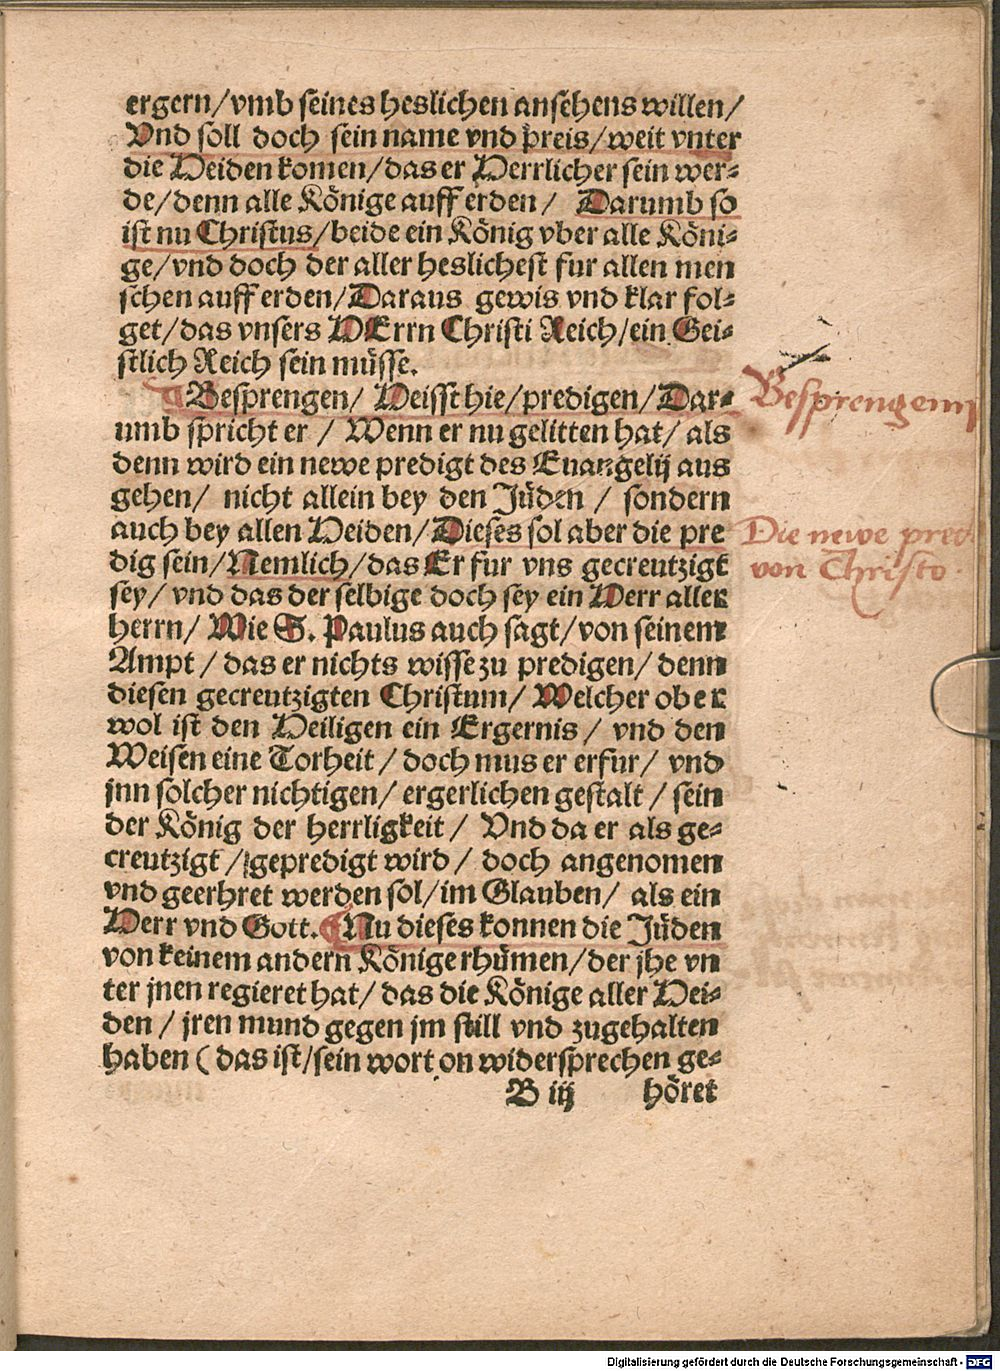 ergern/vmb seines heslichen ansehens willen/
Vnd soll doch sein name vnd preis/weit vnter
die Heiden komen/das er Herrlicher sein wer-
de/denn alle Könige auff erden/ Darumb so
ist nu Christus/beide ein König vber alle Köni-
ge/vnd doch der aller heslichest fur allen men
schen auff erden/Daraus gewis vnd klar fol-
get/das vnsers HErrn Christi Reich/ein Gei-
stlich Reich sein müsse.
Besprengen/ Heisst hie/predigen/Dar-
umb spricht er/ Wenn er nu gelitten hat/ als
denn wird ein newe predigt des Euangelij aus
gehen/ nicht allein bey den Jüden/ sondern
auch bey allen Heiden/Dieses sol aber die pre
dig sein/Nemlich/das Er fur vns gecreutzigt
sey/ vnd das der selbige doch sey ein Herr aller
herrn/ Wie S. Paulus auch sagt/von seinem
Ampt/das er nichts wisse zu predigen/denn
diesen gecreutzigten Christum/ Welcher ober
wol ist den Heiligen ein Ergernis/ vnd den
Weisen eine Torheit/doch mus er erfur/ vnd
jnn solcher nichtigen/ ergerlichen gestalt/sein
der König der herrligkeit/ Vnd da er als ge-
creutzigt/gepredigt wird/ doch angenomen
vnd geerhret werden sol/im Glauben/ als ein
Herr vnd Gott. Nu dieses konnen die Jüden
von keinem andern Könige rhümen/der jhe vn
ter jnen regieret hat/ das die Könige aller Hei-
den/ jren mund gegen jm still vnd zugehalten
haben (das ist/sein wort on widersprechen ge-
B iij höret
Besprengenn
Die newe pred.
von Christo.
Digitalisierung gefördert durch die Deutsche Forschungsgemeinschaft - DFG